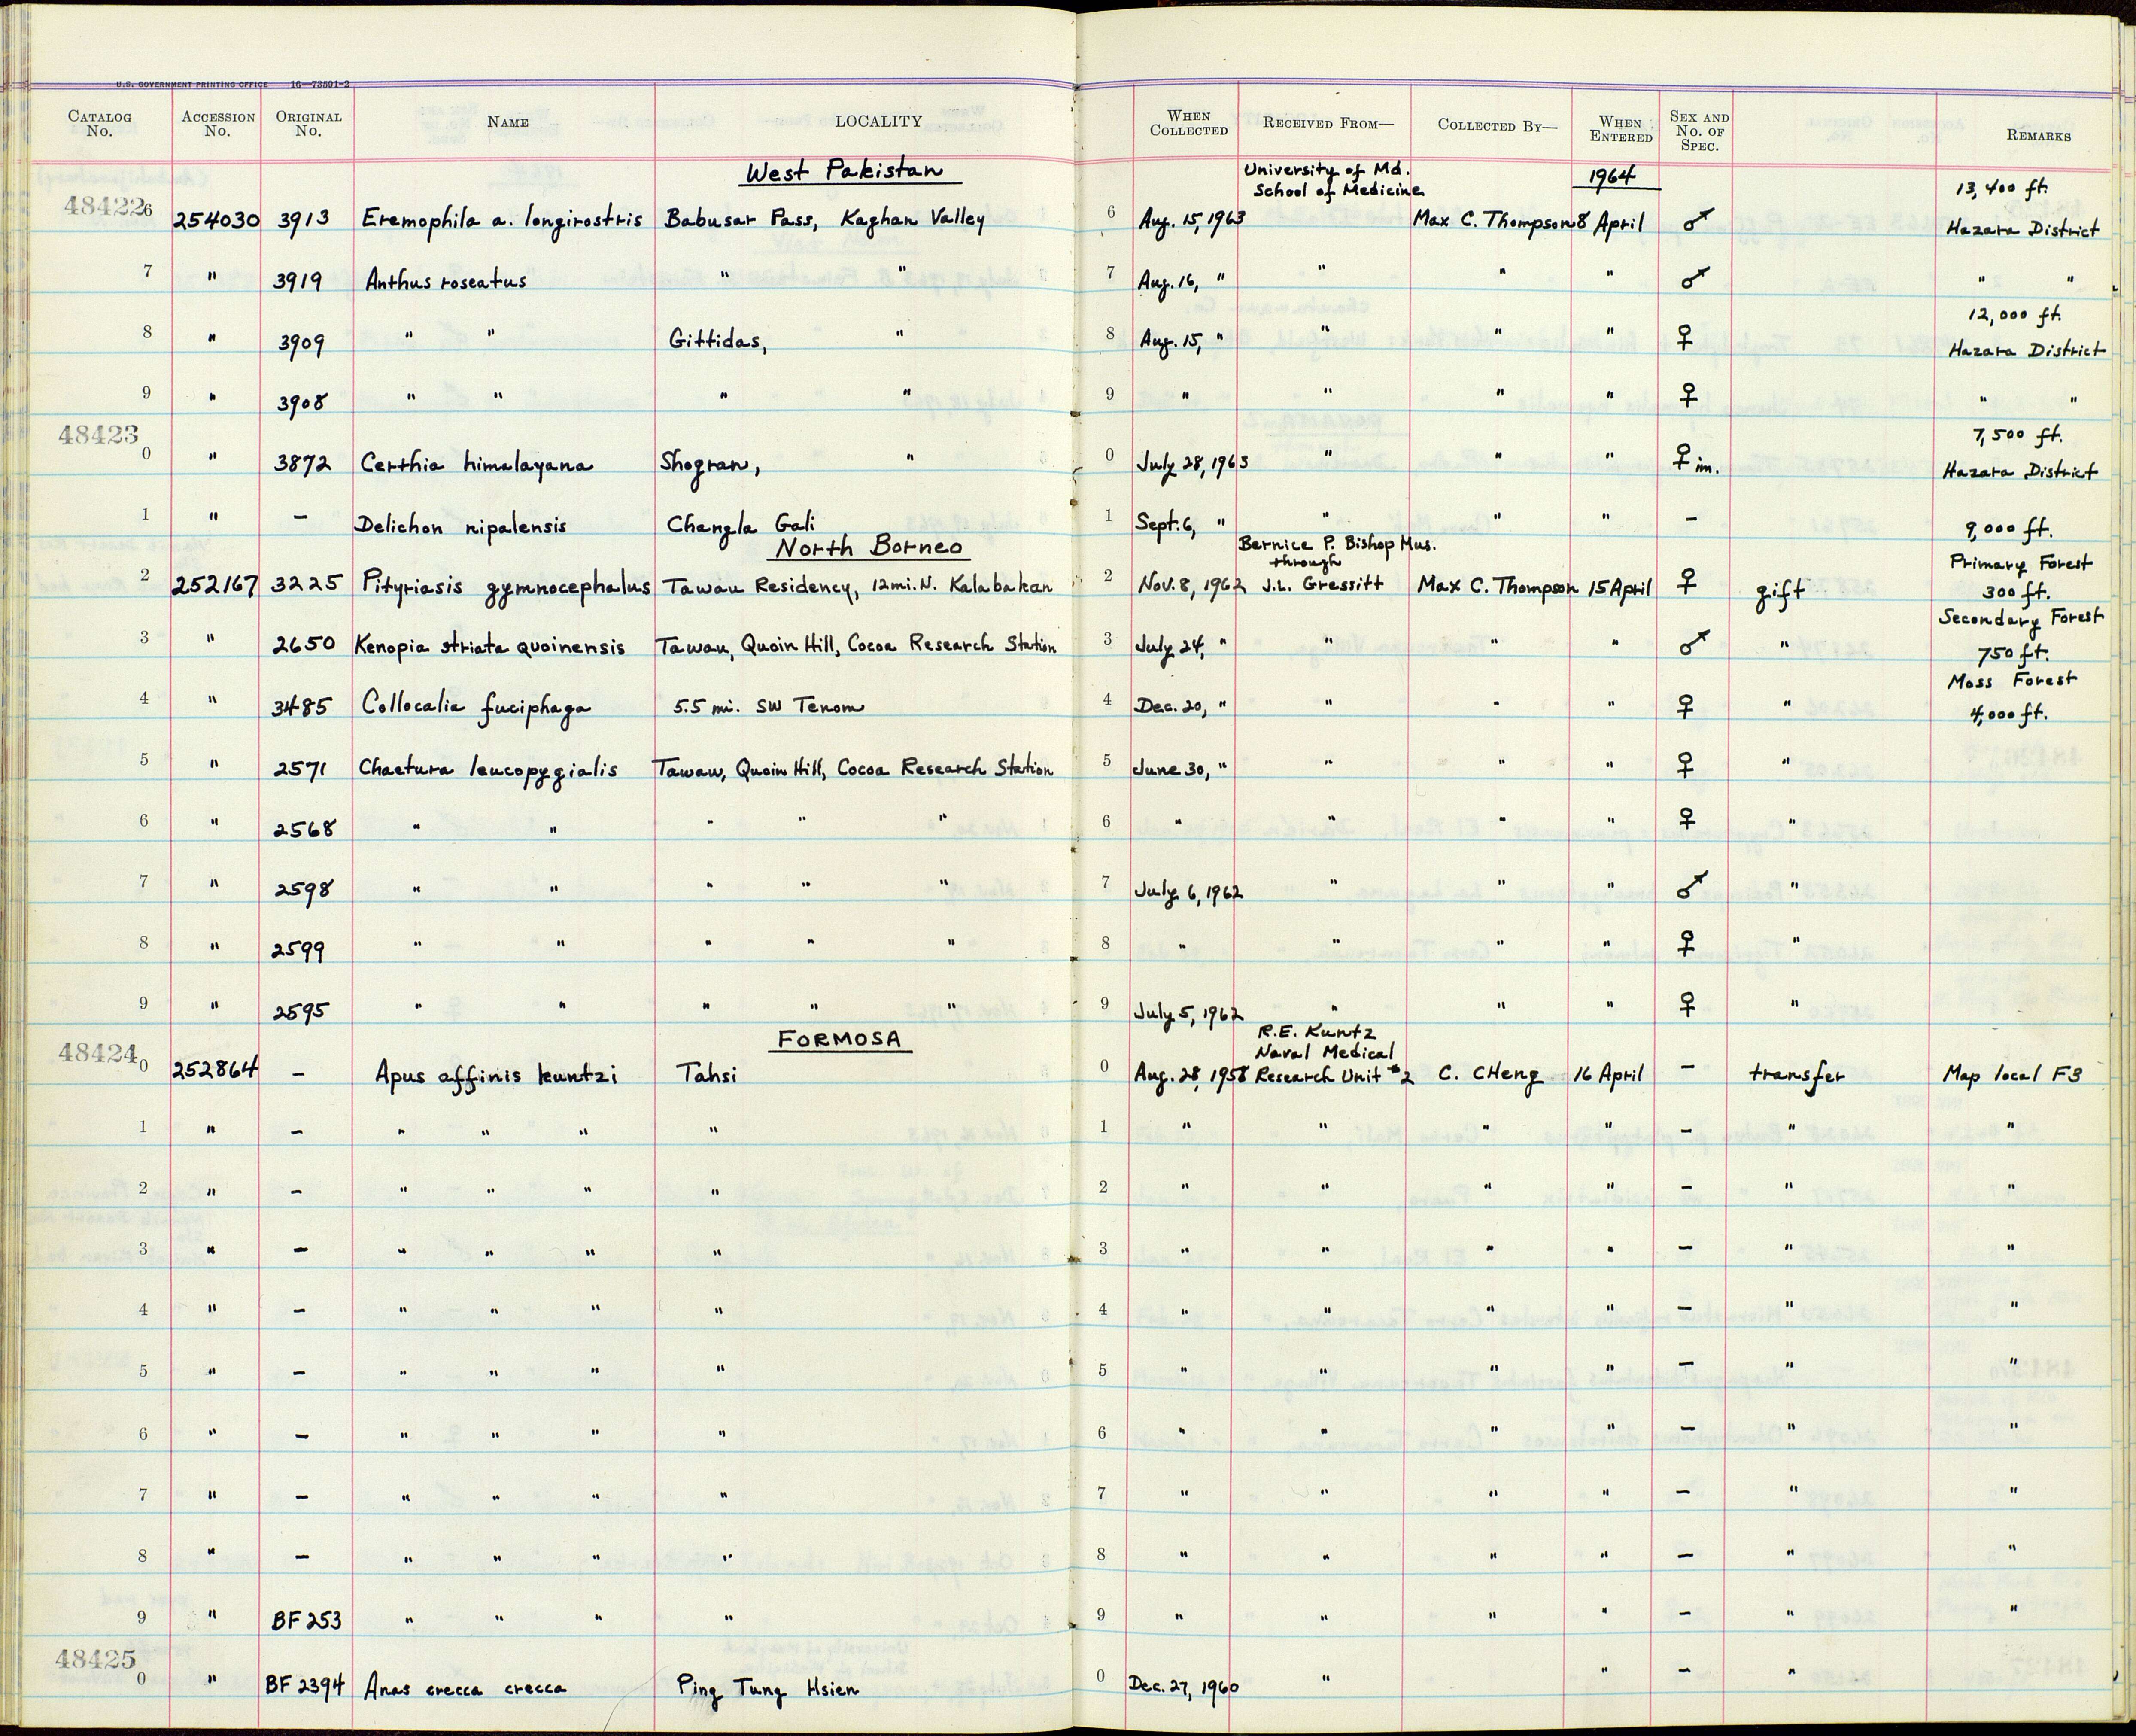 U.S. GOVERNMENT PRINTING OFFICE 16—73591-2
CATALOG No. ACCESSION No. ORIGINAL No. NAME LOCALITY WHEN COLLECTED RECEIVED FROM— COLLECTED BY— WHEN ENTERED SEX AND No. OF SPEC. REMARKS
West Pakistan University of Md. School of Medicine 1964 13,400 ft.
48422 6 254030 3913 Eremophila a. longirostris Babusar Pass, Kaghan Valley 6 Aug. 15, 1963 Max C. Thompson 8 April ♂ Hazara District
7 " 3919 Anthus roseatus " " 7 Aug. 16, " " " " ♂ " "
12,000 ft.
8 " 3909 " " Gittidas, " 8 Aug. 15, " " " " ♀ Hazara District
9 " 3908 " " " " 9 " " " " ♀ " "
48423 7,500 ft.
0 " 3872 Certhia himalayana Shogran, " 0 July 28, 1963 " " " ♀ im. Hazara District
1 " — Delichon nipalensis Changla Gali 1 Sept. 6, " " " " — 9,000 ft.
North Borneo Bernice P. Bishop Mus. through Primary Forest
2 252167 3225 Pityriasis gymnocephalus Tawau Residency, 12mi. N. Kalabakan 2 Nov. 8, 1962 J.L. Gressitt Max C. Thompson 15 April ♀ gift 300 ft.
Secondary Forest
3 " 2650 Kenopia striata quoinensis Tawau, Quoin Hill, Cocoa Research Station 3 July 24, " " " " ♂ " 750 ft.
Moss Forest
4 " 3485 Collocalia fuciphaga 5.5 mi. SW Tenom 4 Dec. 20, " " " " ♀ " 4,000 ft.
5 " 2571 Chaetura leucopygialis Tawau, Quoin Hill, Cocoa Research Station 5 June 30, " " " " ♀ "
6 " 2568 " " " " " 6 " " " " ♀ "
7 " 2598 " " " " " 7 July 6, 1962 " " " ♂ "
8 " 2599 " " " " " 8 " " " " ♀ "
9 " 2595 " " " " " 9 July 5, 1962 " " " ♀ "
FORMOSA R.E. Kuntz Naval Medical
48424 0 252864 — Apus affinis kuntzi Tahsi 0 Aug. 28, 1958 Research Unit #2 C. CHeng 16 April — transfer Map local F3
1 " — " " " " 1 " " " " — " "
2 " — " " " " 2 " " " " — " "
3 " — " " " " 3 " " " " — " "
4 " — " " " " 4 " " " " — " "
5 " — " " " " 5 " " " " — " "
6 " — " " " " 6 " " " " — " "
7 " — " " " " 7 " " " " — " "
8 " — " " " " 8 " " " " — " "
9 " BF 253 " " " " 9 " " " " — " "
48425 0 " BF 2394 Anas crecca crecca Ping Tung Hsien 0 Dec. 27, 1960 " " — "